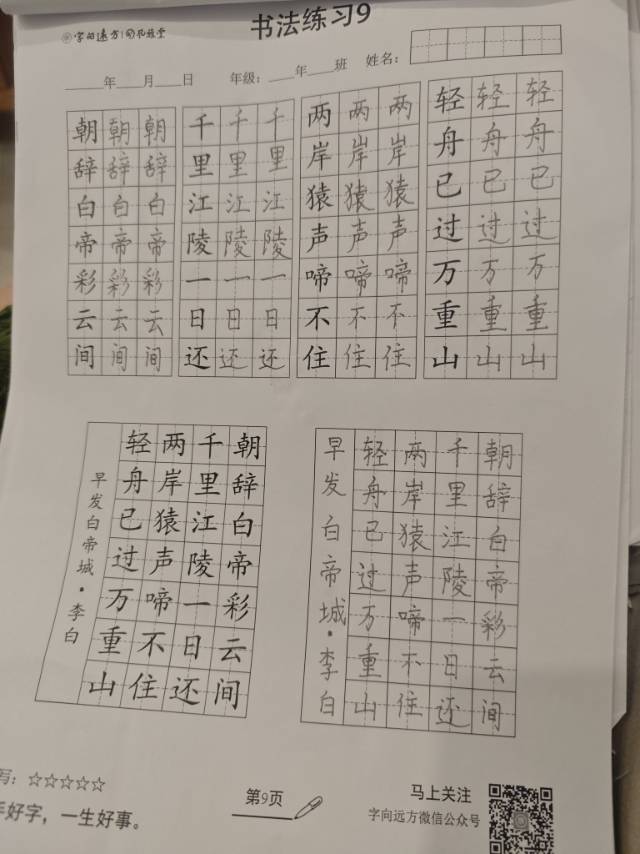 字向远方
书法练习9
_____年___月___日 年级：___年___班 姓名：
朝朝朝
辞辞辞
白白白
帝帝帝
彩彩彩
云云云
间间间
千千千
里里里
江江江
陵陵陵
一一一
日日日
还还还
两两两
岸岸岸
猿猿猿
声声声
啼啼啼
不不不
住住住
轻轻轻
舟舟舟
已已已
过过过
万万万
重重重
山山山
朝辞白帝彩云间
千里江陵一日还
两岸猿声啼不住
轻舟已过万重山
早发白帝城·李白
朝辞白帝彩云间
千里江陵一日还
两岸猿声啼不住
轻舟已过万重山
早发白帝城·李白
写：☆☆☆☆☆
手好字，一生好事。
第9页
马上关注
字向远方微信公众号